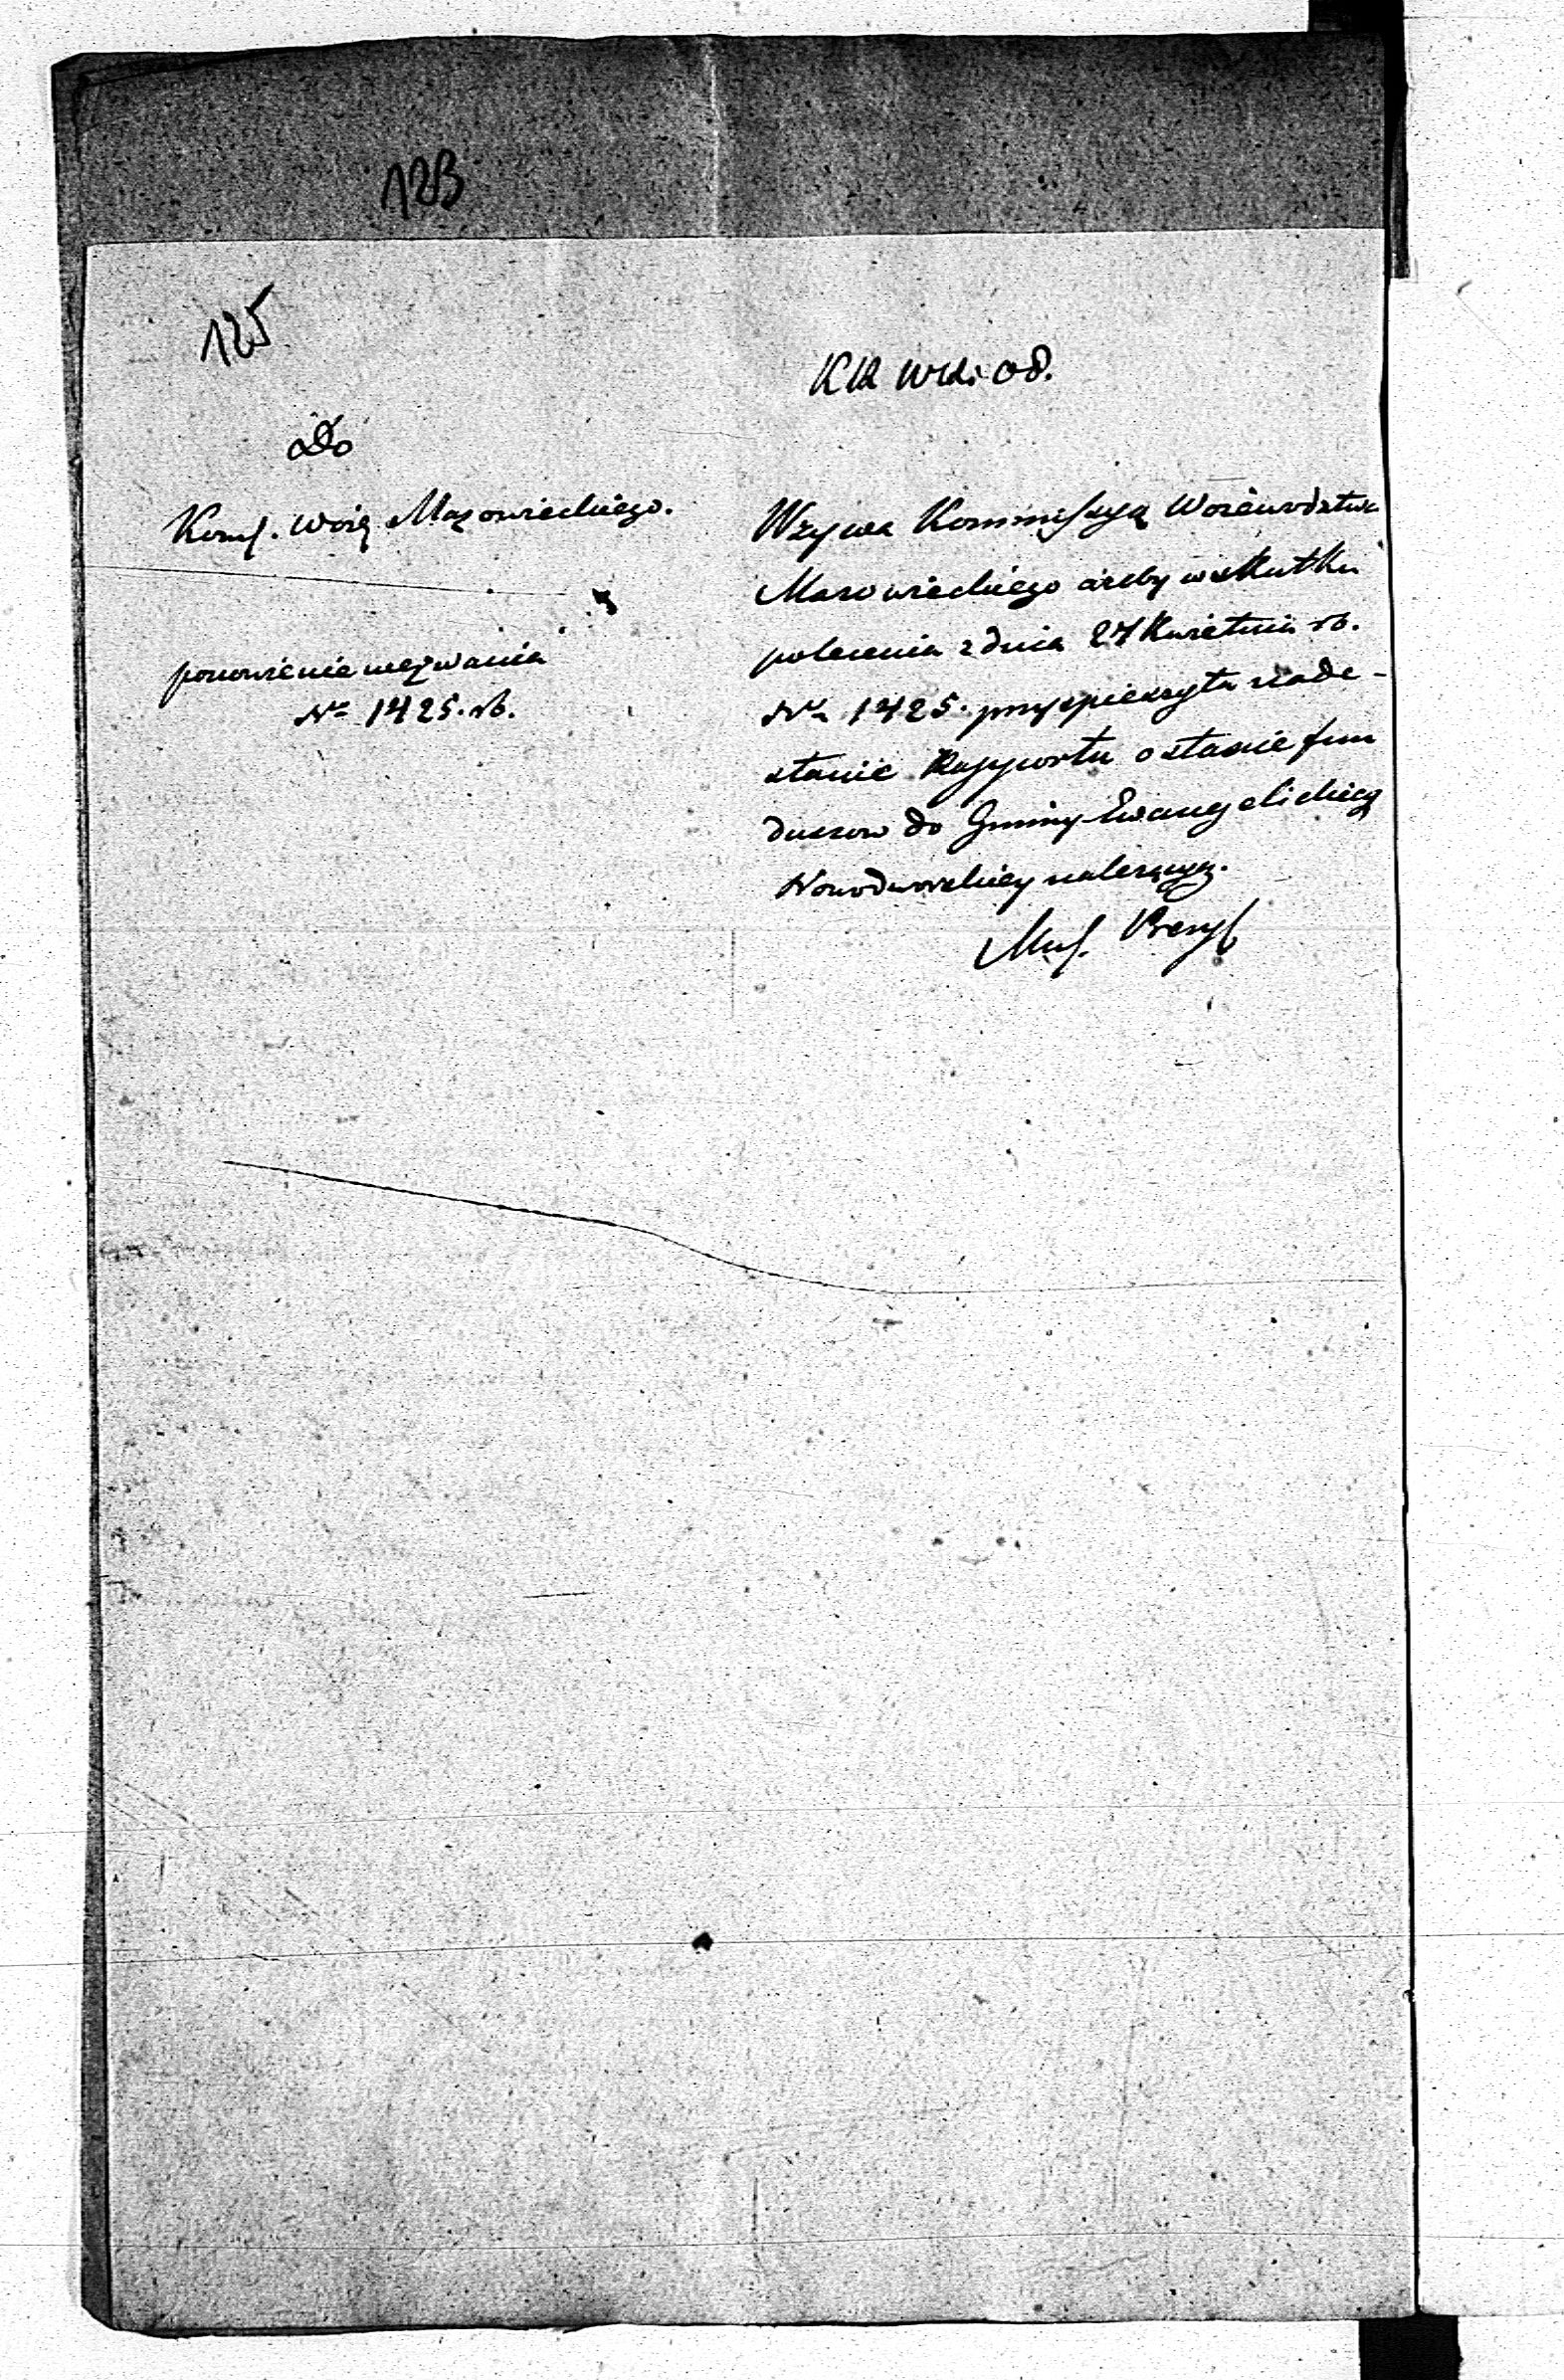 123
125
Do
Kom. Woię Mazowieckiego.
ponowienie wezwania
No 1425. rb.
KR WR i OP.
Wzywa Kommissyą Woiewodztwa
Mazowieckiego ażeby wskutku
polecenia z dnia 27 Kwietnia rb.
No 1425. przyspieszyła nade-
słanie Rapportu o stanie fun
duszow do Gminy Ewangelickiey
Nowodworskiey należących.
Prezy